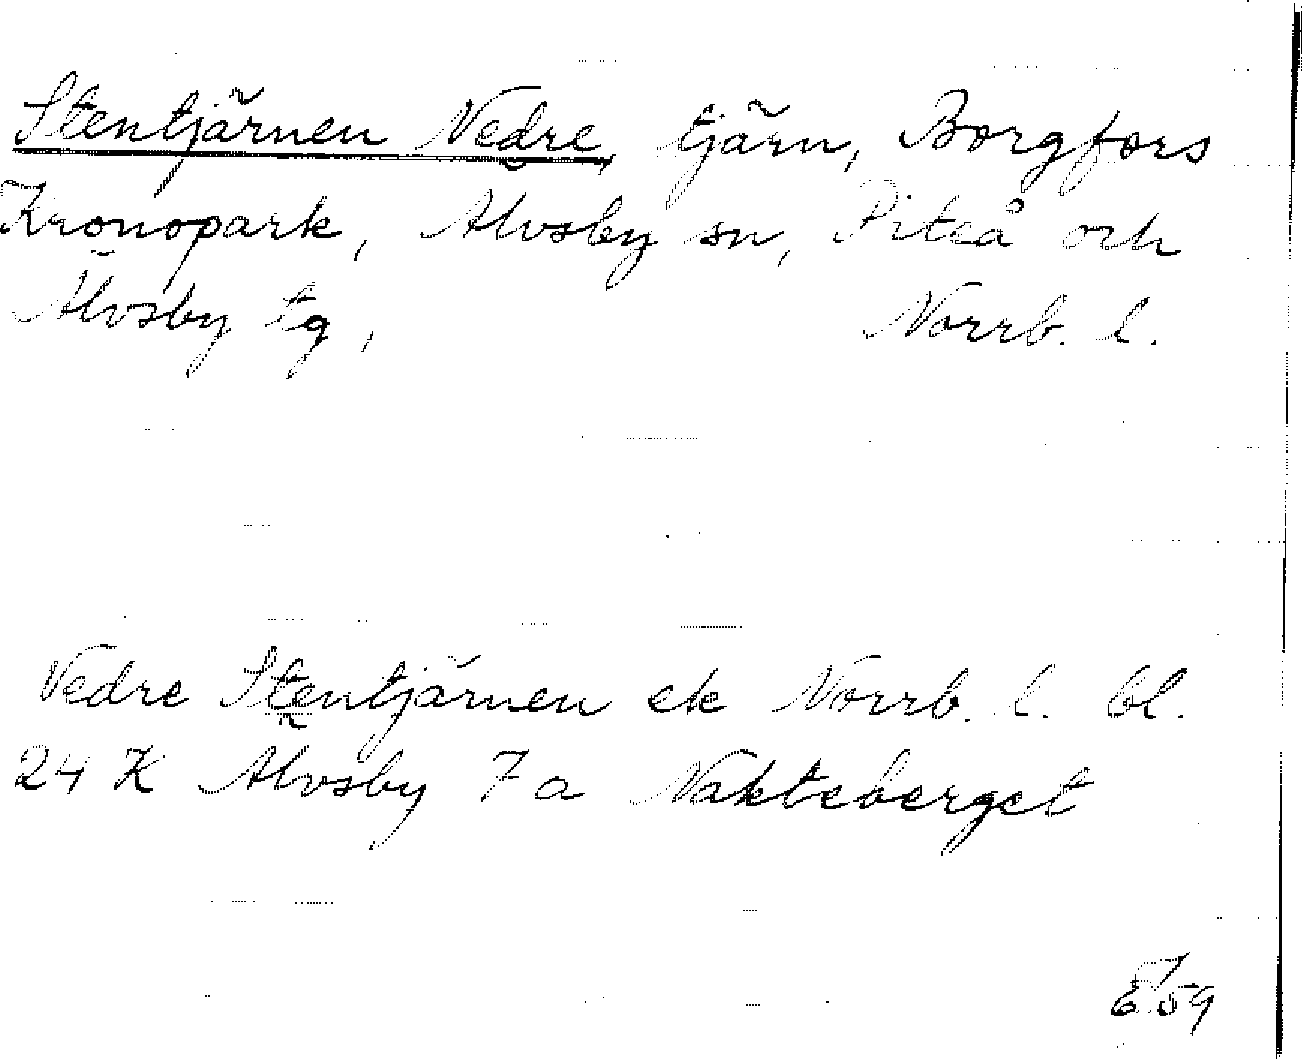 Stentjärnen Vedre, tjärn, Borgfors
Kronopark, Älvsby sn, Piteå och
Älvsby tg, Norrb. l.
Vedre Stentjärnen ek Norrb. l. bl.
24 K Älvsby 7 a Nakteberget